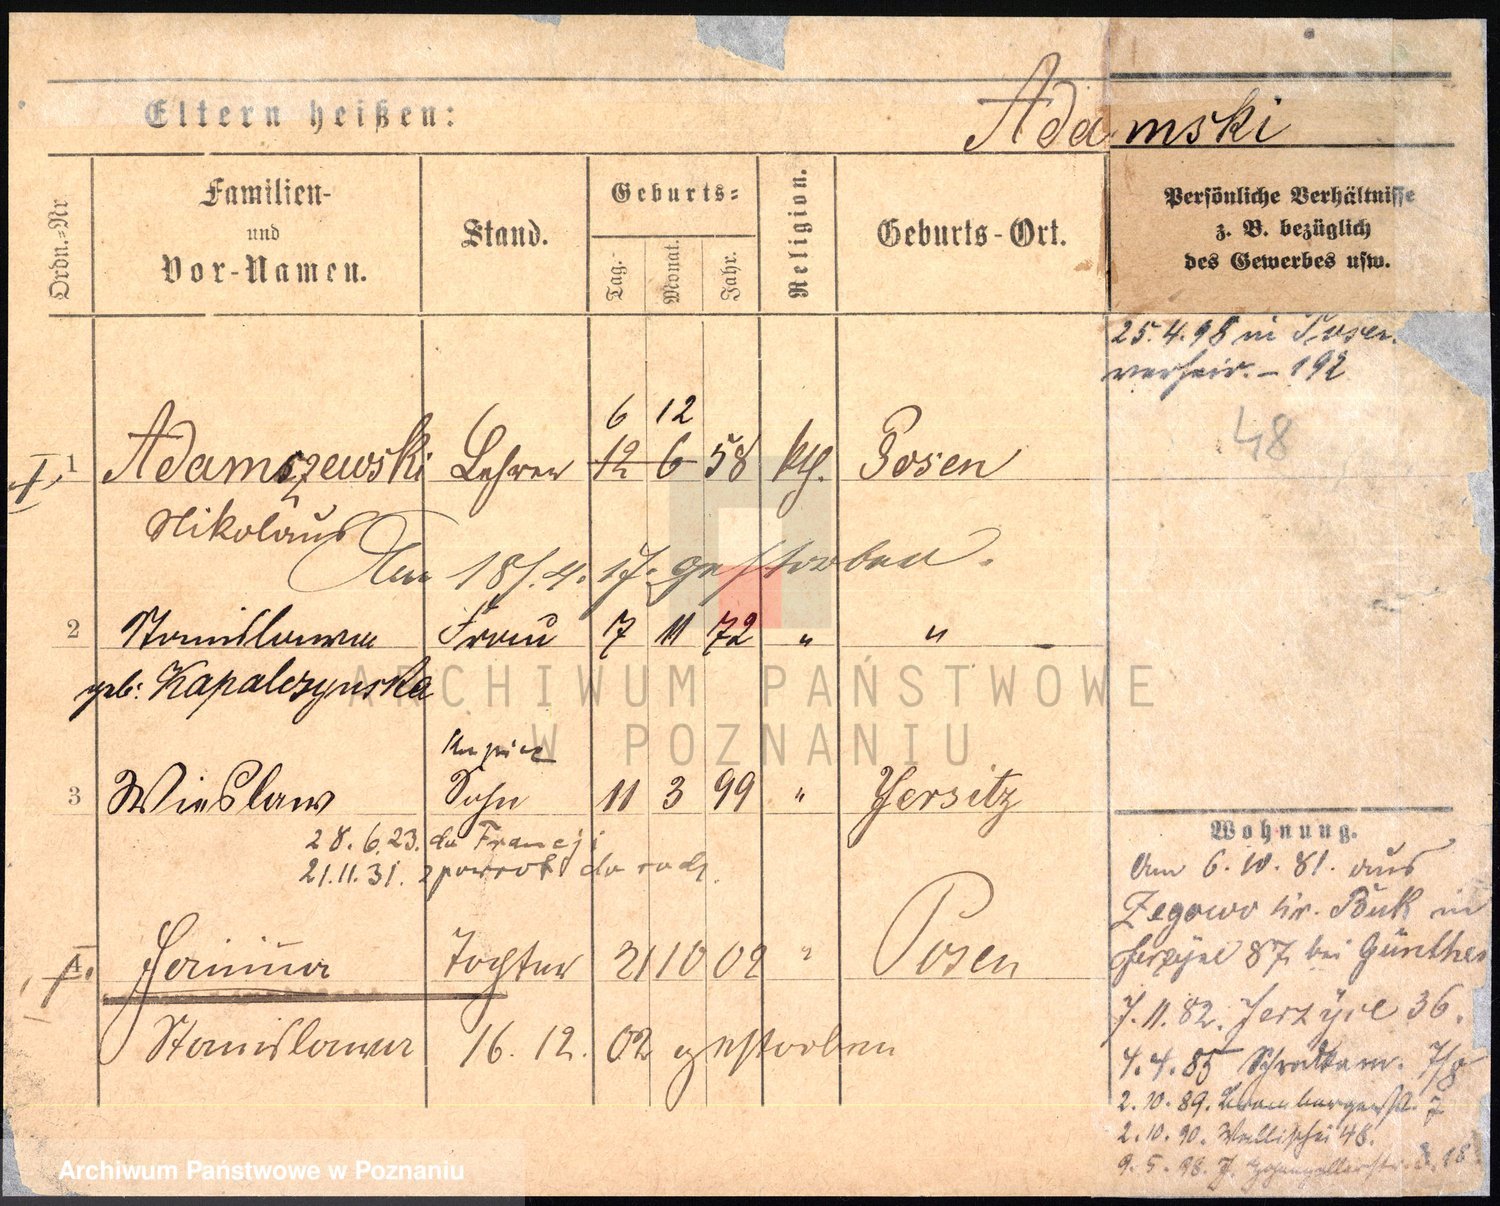 Eltern heißen:
Adamski
Ordn.-Nr
Familien-
und
Vor-Namen.
Stand.
Geburts-
Tag.
Monat.
Jahr.
Religion.
Geburts-Ort.
Persönliche Verhältnisse
z. B. bezüglich
des Gewerbes usw.
25.4.98 in Posen
verheir. - 192
48
6 12
1 Adamszewski Lehrer 12 6 58 kth. Posen
Nikolaus
Am 18/.4.17. gestorben.
2 Stanislawa Frau 7 11 72 " "
geb: Kapalczynska
ARCHIWUM PAŃSTWOWE
W POZNANIU
Kupiec
3 Wieslaw Sohn 11 3 99 " Jersitz
28.6.23. do Francji
21.11.31. zpowrot do rodz.
4. Janina Tochter 21 10 02 " Posen
Stanislawa 16. 12. 02 gestorben
Wohnung.
Am 6.10.81. aus
Zegowo Kr. Buk in
87 bei Günther
7.11.82. Jerzyce 36.
4.4.85
2.10.89. Brombergerst. 7
2.10.90. Wallischei 48.
9.5.96.
Archiwum Państwowe w Poznaniu